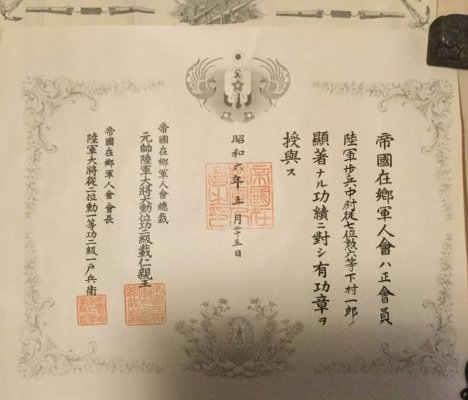 帝國在鄉軍人會ハ正會員
陸軍歩兵中尉從七位勲六等下村一郎ノ
顯著ナル功績ニ對シ有功章ヲ
授與ス
昭和六年五月廿五日
帝國在鄉軍人會總裁
元帥陸軍大將大勲位功二級載仁親王
帝國在鄉軍人會會長
陸軍大將從二位勲一等功二級一戸兵衞